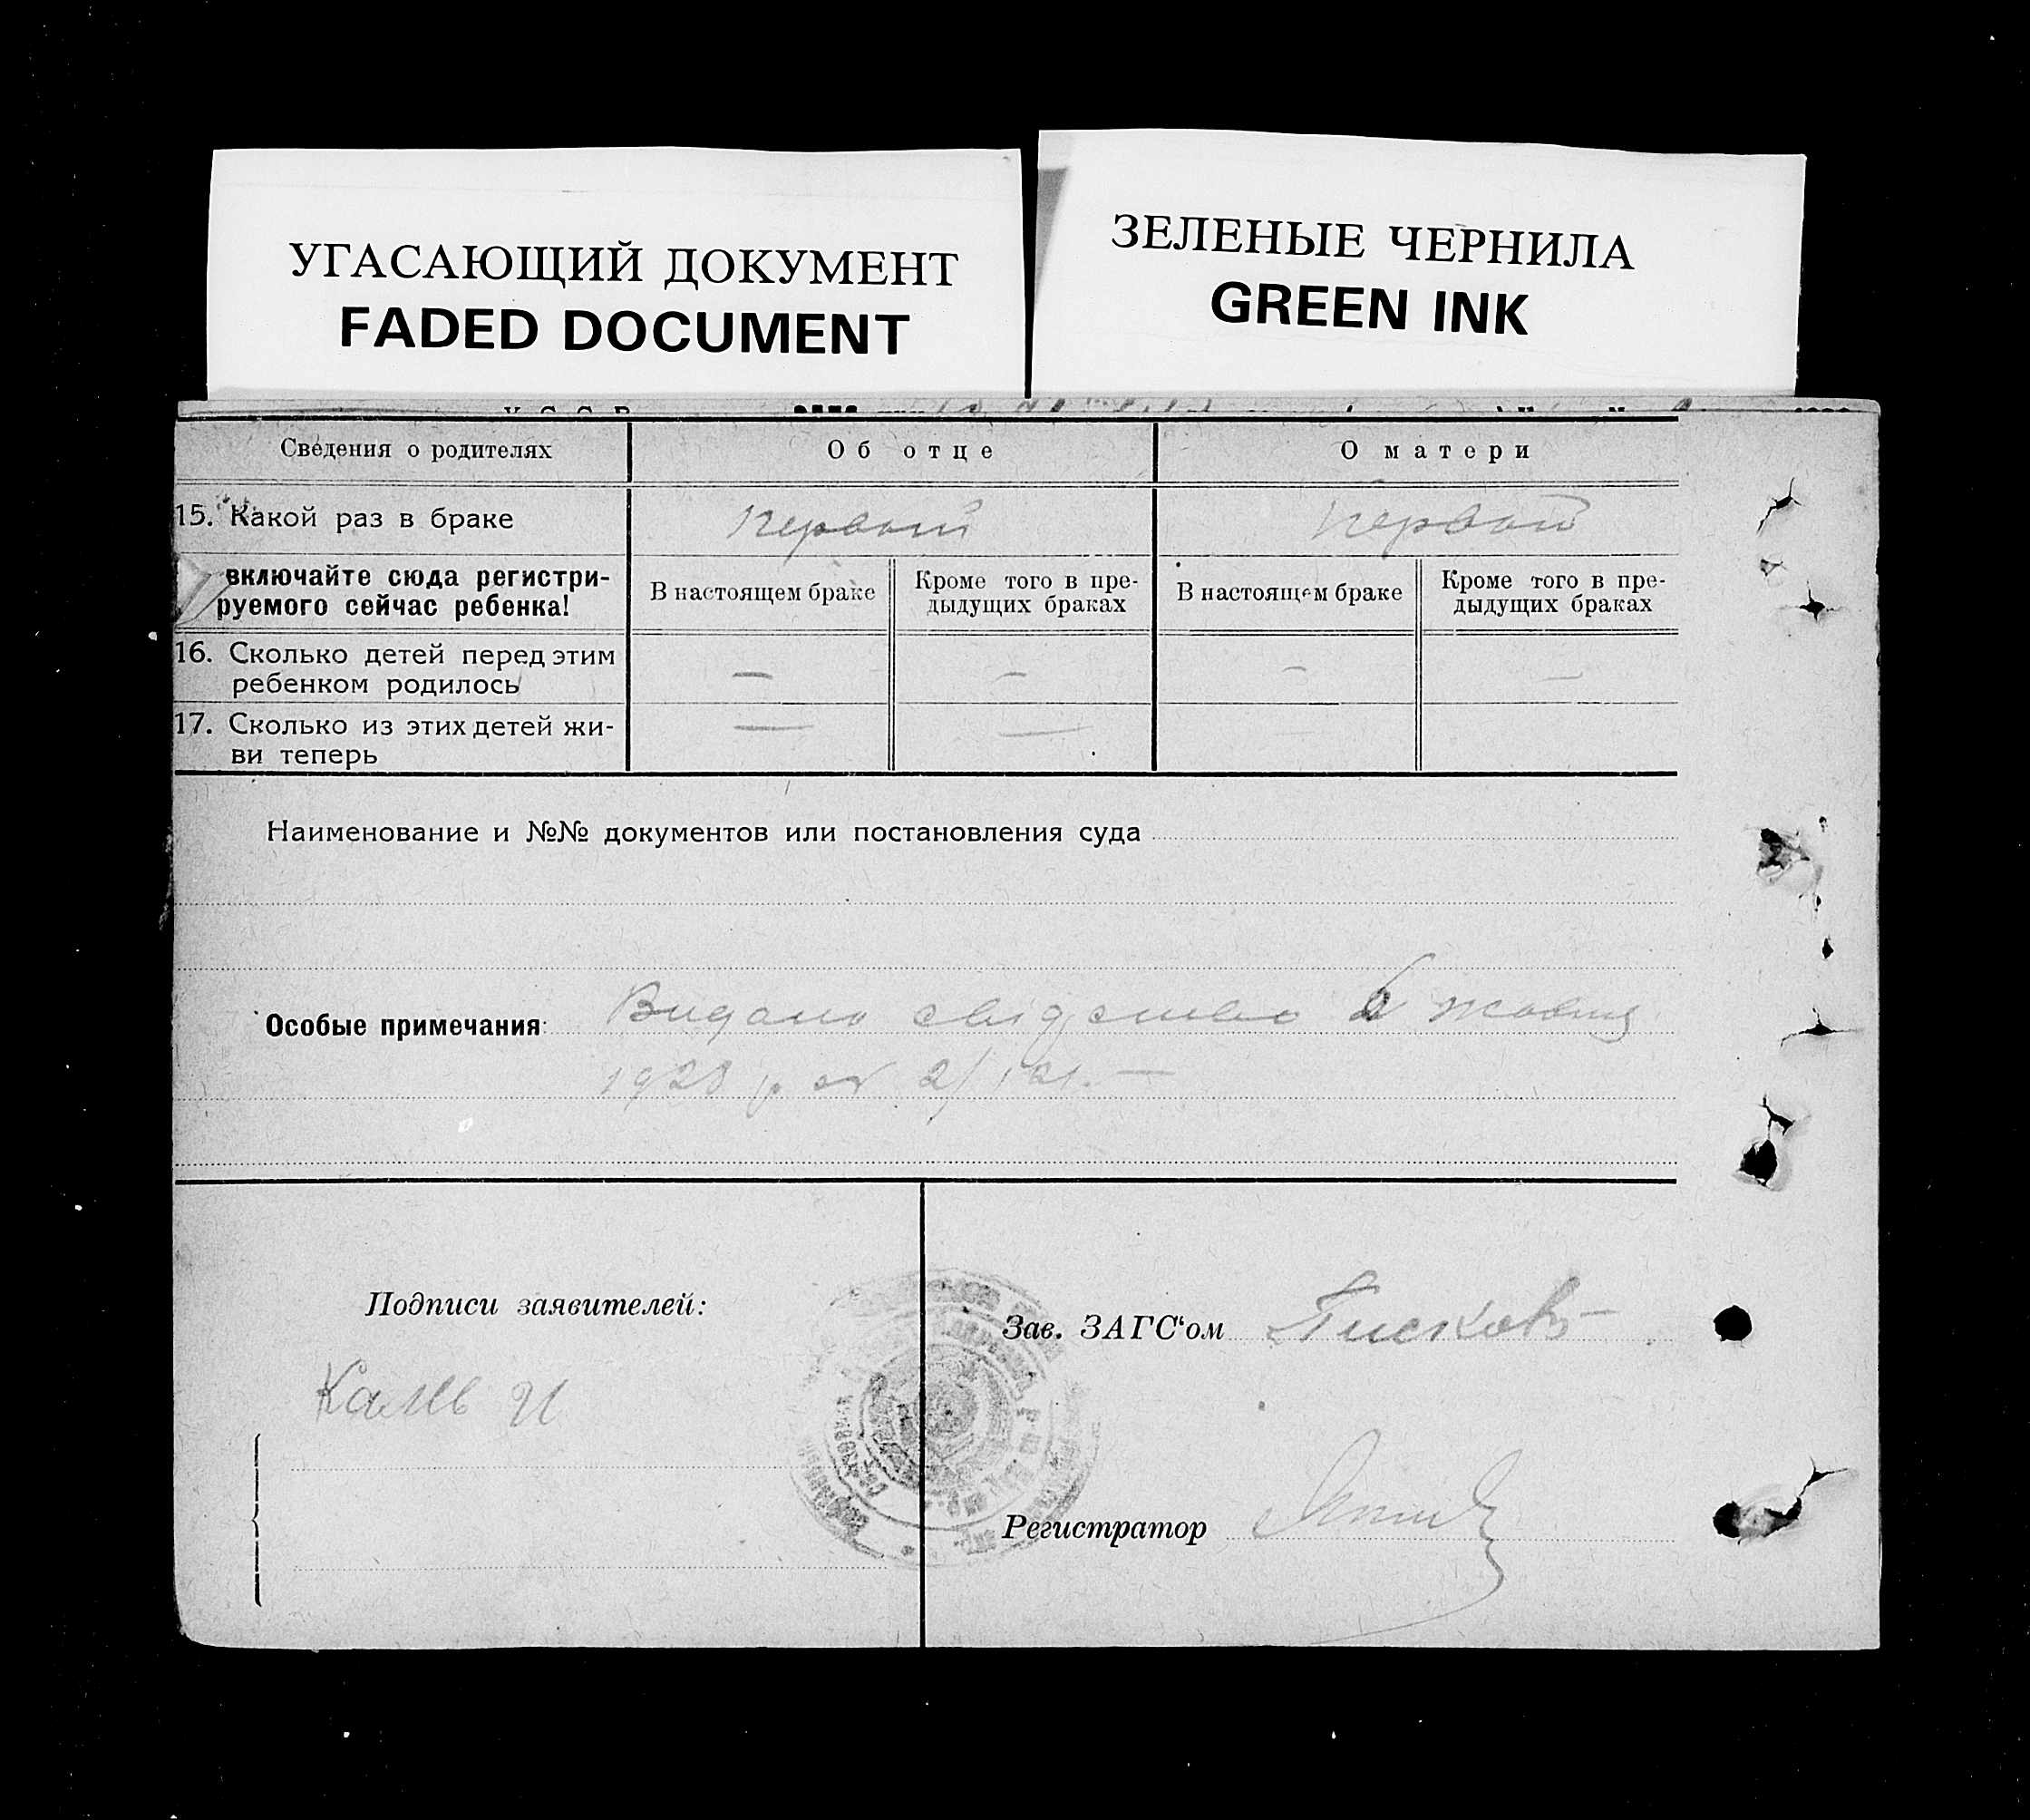 УГАСАЮЩИЙ ДОКУМЕНТ
FADED DOCUMENT
ЗЕЛЕНЫЕ ЧЕРНИЛА
GREEN INK
Сведения о родителях Об отце О матери
15. Какой раз в браке первый первый
включайте сюда регистри-
руемого сейчас ребенка!
В настоящем браке
Кроме того в пре-
дыдущих браках
В настоящем браке
Кроме того в пре-
дыдущих браках
16. Сколько детей перед этим
ребенком родилось — — — —
17. Сколько из этих детей жи-
ви теперь — —
Наименование и №№ документов или постановления суда
Особые примечания: Видано свідоцтво 6 жовтня
1928 р. 2/121. —
Подписи заявителей:
Зав. ЗАГС‘ом
Регистратор